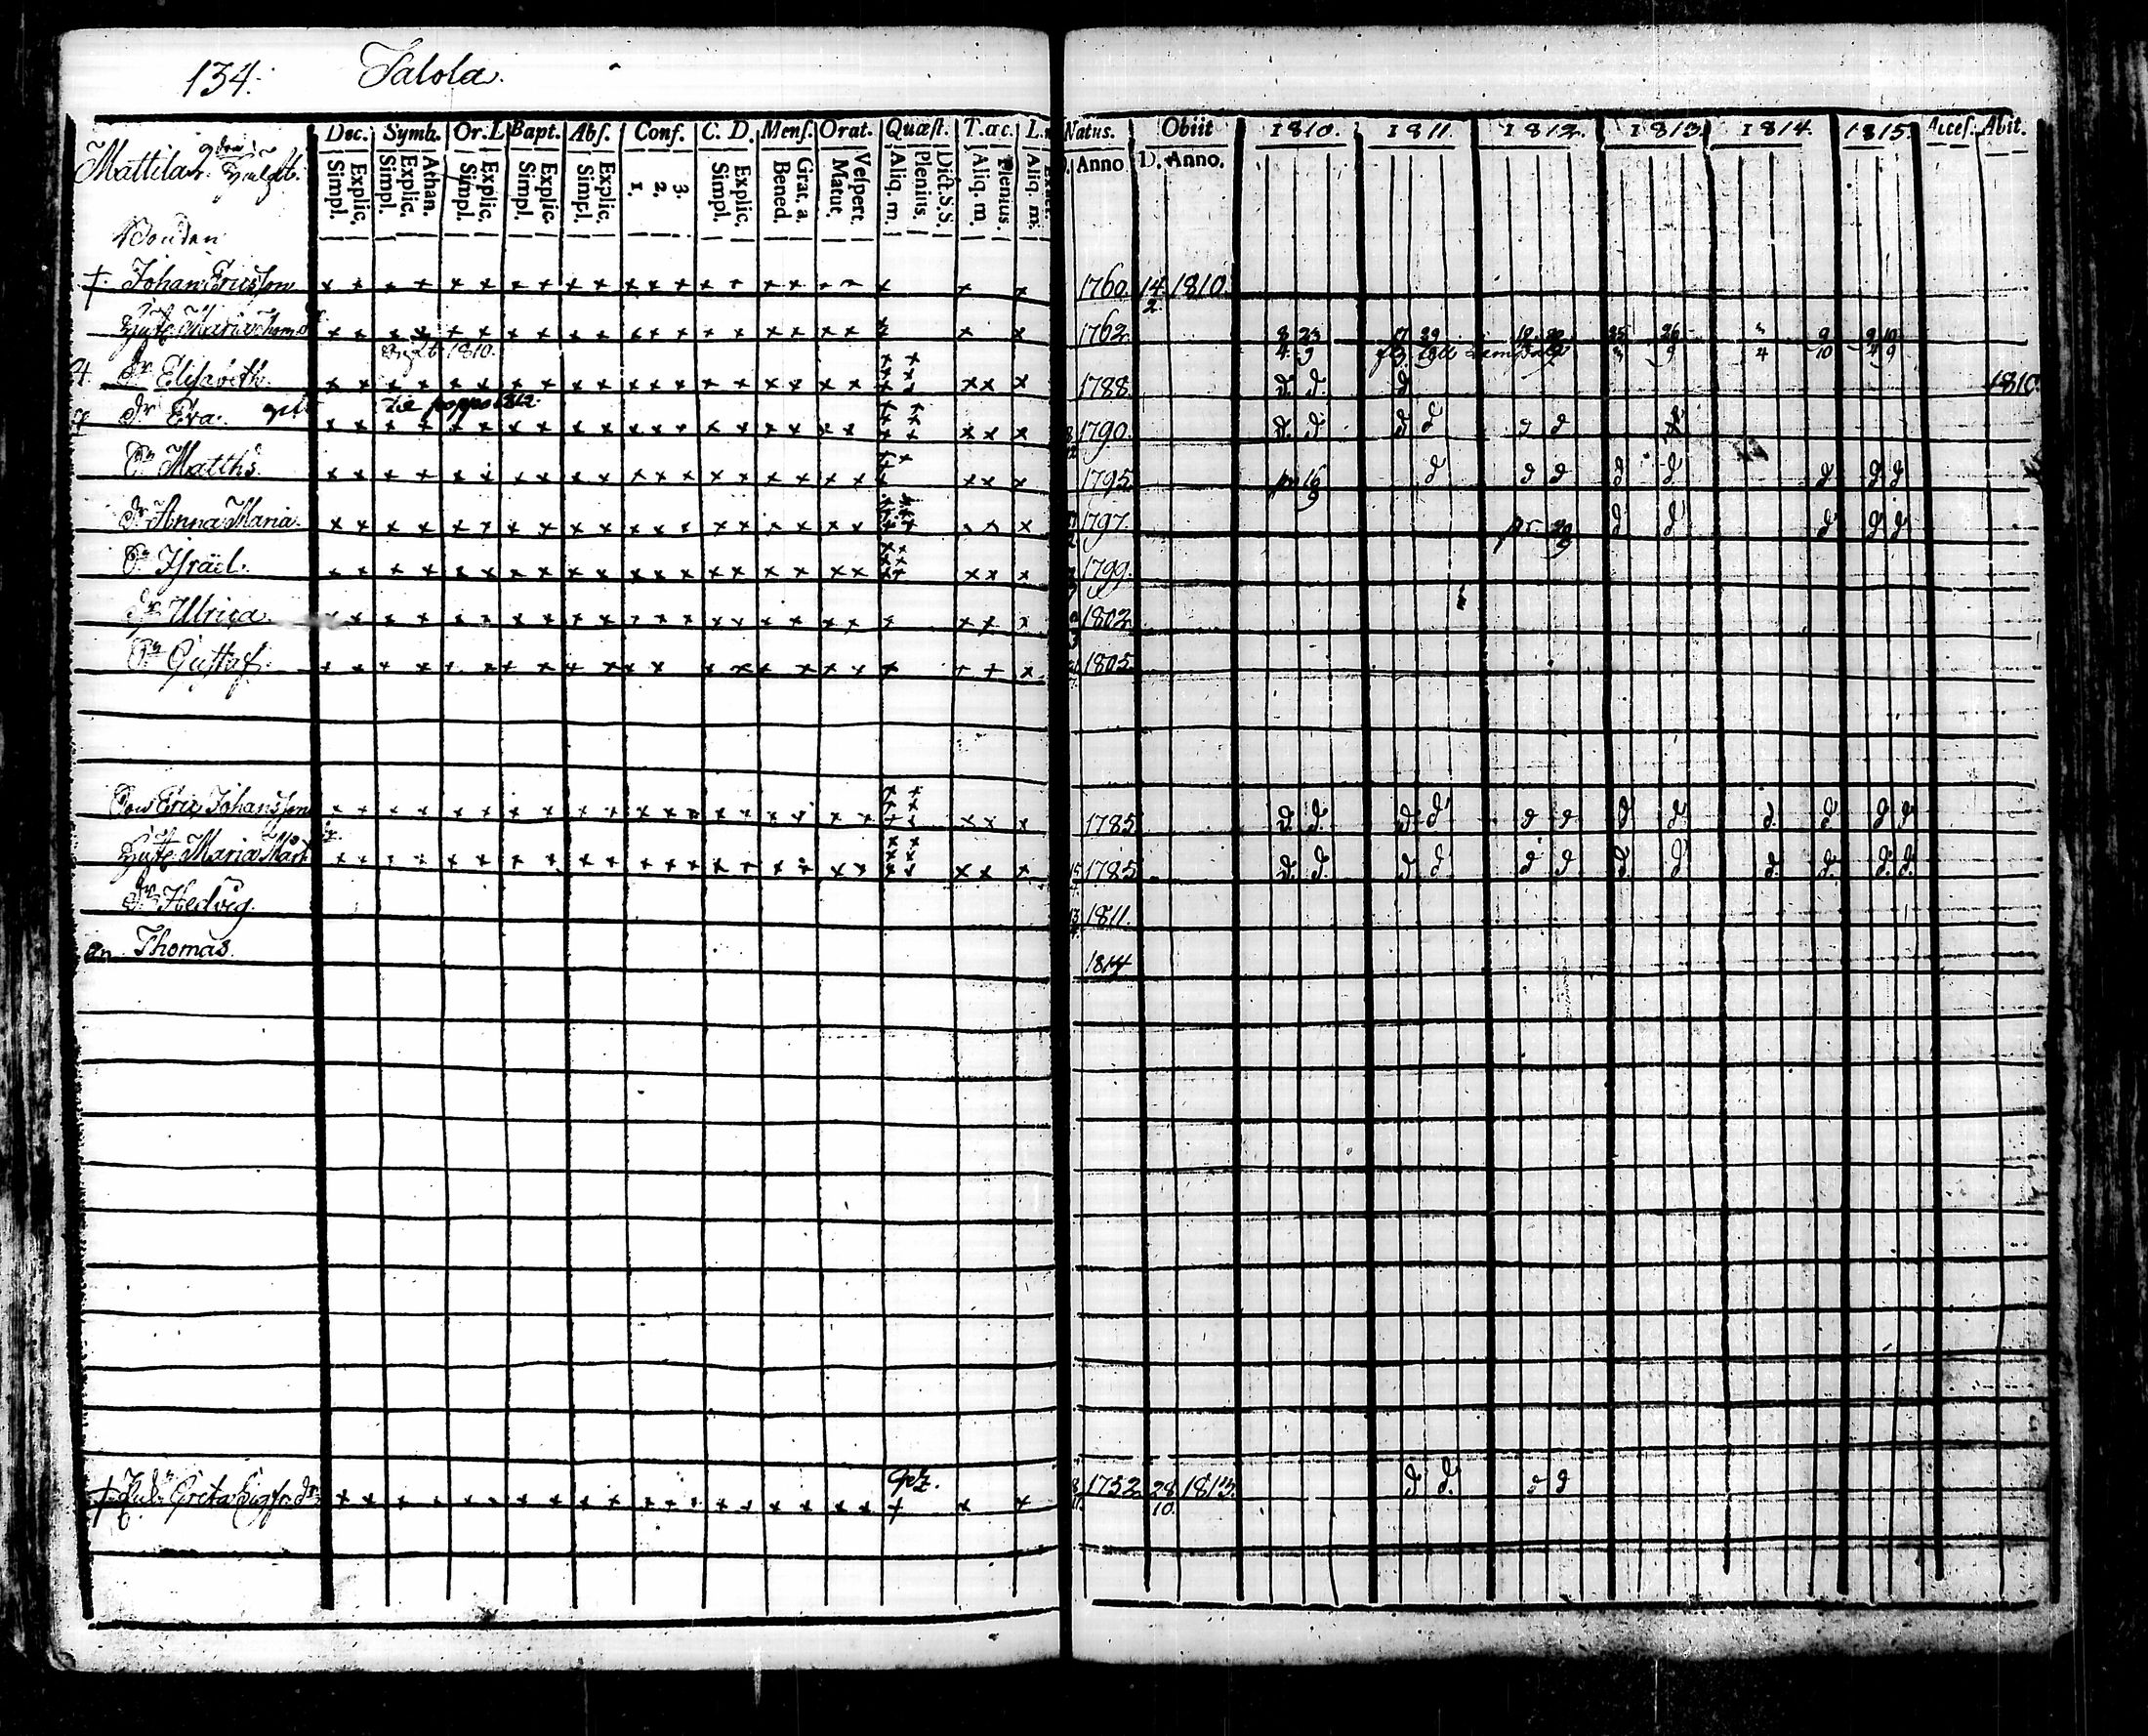 134. Talola.
Dec. Symb. Or. L Bapt. Abs. Conf. C. D. Mens. Orat. Quæst. T. ac. L. Natus. Obiit 1810. 1811. 1812. 1813. 1814. 1815. Acces. Abit.
Explic. Simpl. Athan. Explic. Simpl. Explic. Simpl. Explic. Simpl. Explic. Simpl. 3. 2. 1. Explic. Simpl. Grat. a. Bened. Vespert. Matut. Dict. S. S. Plenius. Aliq. m. Plenius. Aliq. m. Aliq. m. Anno D. Anno.
Mattila
Bonden
† Johan Ericsson 1760 14/2 1810.
Hust. Maria Thom. dr 1762 8/4 23/9 17 29 25 26/9 4 9/10 9/4 10/9
1810.
dr Elisabeth. 1788 d. d. d 1810
till poppo 1812.
dr Eva. gift 1790 d. d d d d d
Sn Matths. 1795 pr 16/9 d d d d d d d d
dr Anna Maria. 1797 pr 20/9 d d d d d
Sn Israel. 1799
dr Ulrica. 1802
Sn Gustaf. 1805
Son Eric Johansson 1785 d. d. d d d d d d d. d d d
Hust. Maria Mårt. dr 1785 d. d. d d d d d. d d. d. d. d.
dr Hedvig. 1811.
Sn Thomas. 1814
† Greta Sigfr. dr 1752 28/10. 1813. d d. d d